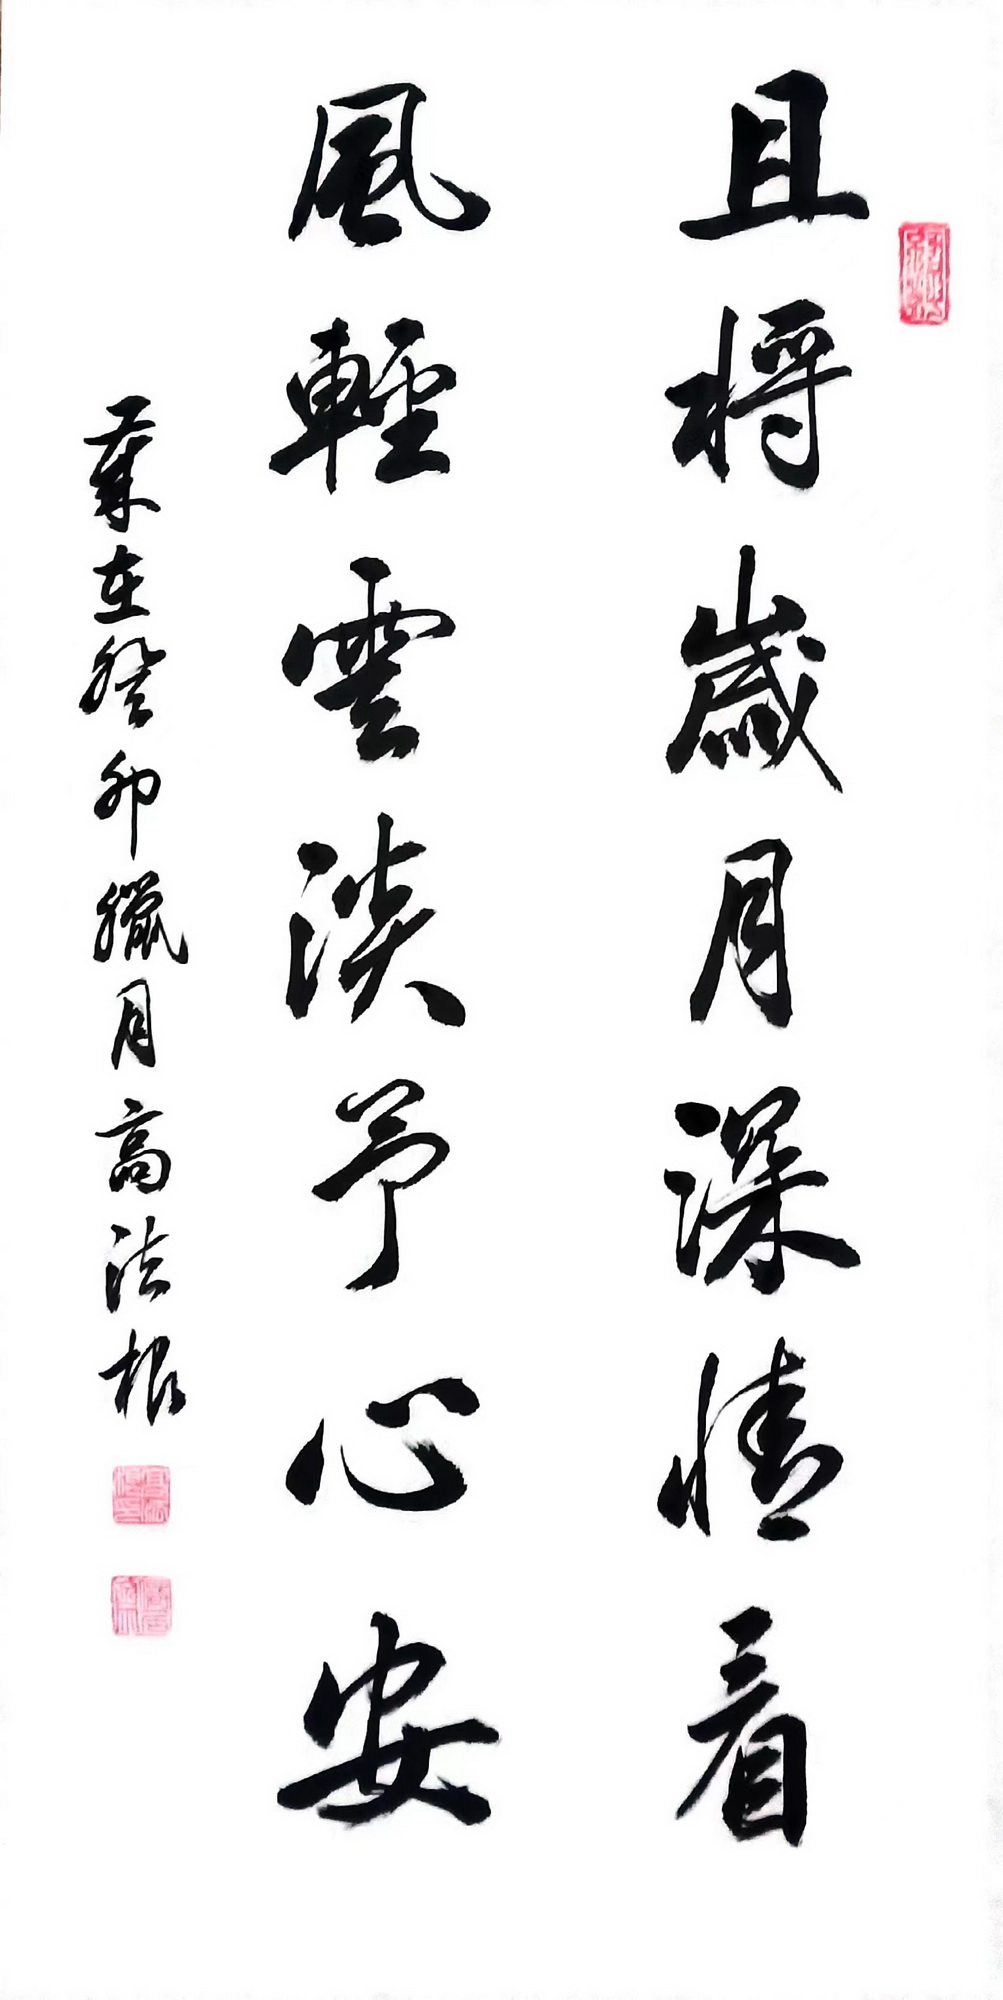 且将歲月深情看
風輕雲淡予心安
歲在癸卯臘月高法根